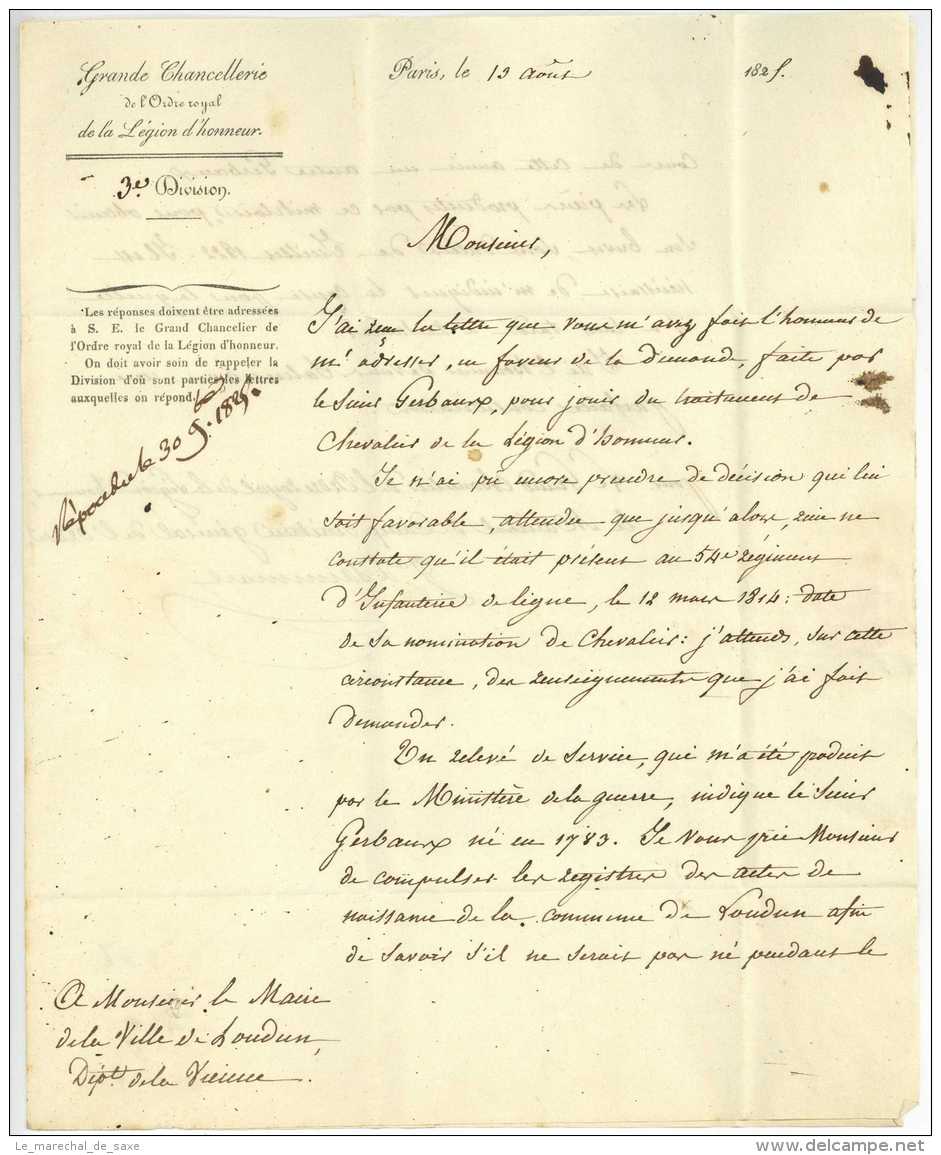 Grande Chancellerie
de l'Ordre royal
de la Légion d'honneur.
3e. Division.
Paris, le 13 août 1825.
Monsieur,
Les réponses doivent être adressées
à S. E. le Grand Chancelier de
l'Ordre royal de la Légion d'honneur.
On doit avoir soin de rappeler la
Division d'où sont parties les lettres
auxquelles on répond.
Répondu le 30 1825.
J'ai reçu la lettre que vous m'avez fait l'honneur de
m'adresser, en faveur de la demande, faite par
le Sieur Gerbaux, pour jouir du traitement de
Chevalier de la Légion d'honneur.
Je n'ai pû encore prendre de décision qui lui
soit favorable, attendu que jusqu'alors, rien ne
constate qu'il était présent au 54e. régiment
d'Infanterie de ligne, le 12 mars 1814: date
de sa nomination de Chevalier: j'attends, sur cette
circonstance, des renseignements que j'ai fait
demander.
Un relevé de service, qui m'a été produit
par le Ministère de la guerre, indique le Sieur
Gerbaux né en 1783. Je vous prie Monsieur
de compulser les registres des actes de
naissance de la commune de Loudun afin
de savoir s'il ne serait pas né pendant le
A Monsieur le Maire
de la Ville de Loudun,
Dépt. de la Vienne.
Le_marechal_de_saxe
www.delcampe.net